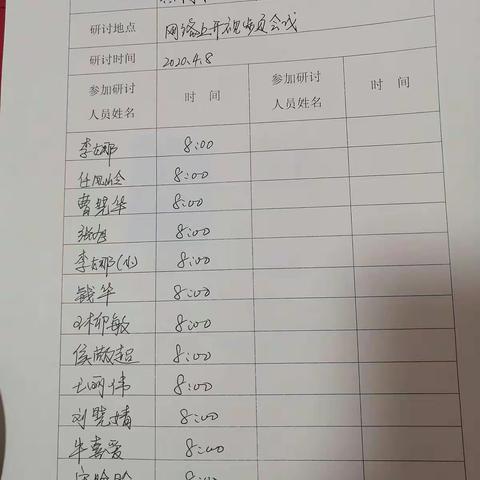 研讨地点 网络上开视频会议
研讨时间 2020.4.8
参加研讨人员姓名 时 间 参加研讨人员姓名 时 间
李娜 8:00
任 8:00
曹晓华 8:00
张旭 8:00
李娜(小) 8:00
钱华 8:00
敏 8:00
侯 超 8:00
丽伟 8:00
刘晓婧 8:00
牛喜爱 8:00
8:00